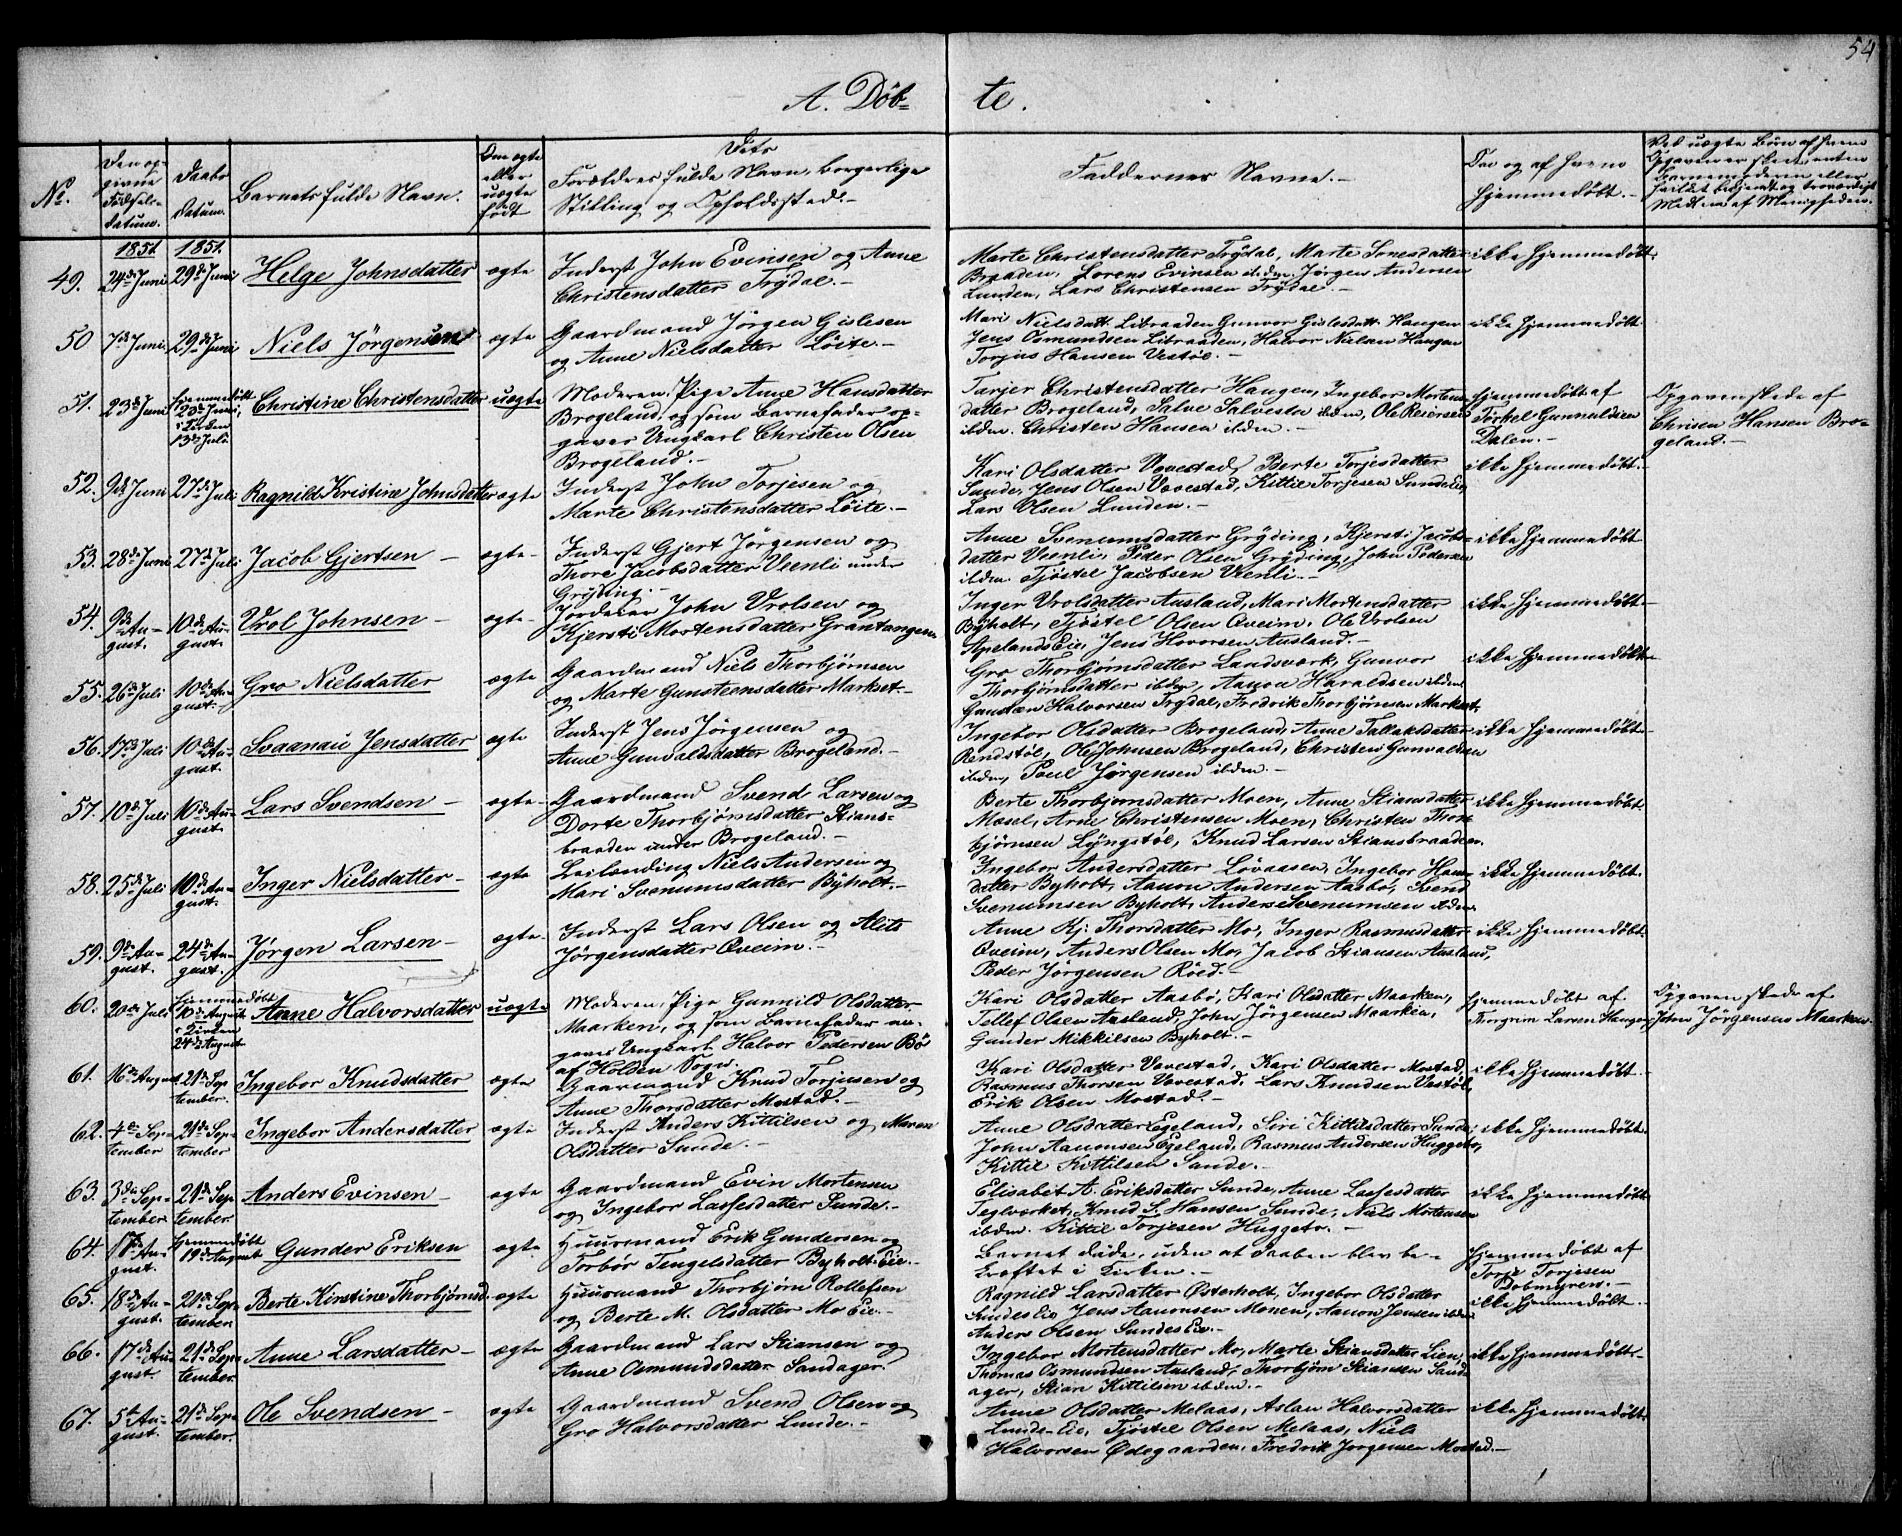 54
A. Døb- te.
No.
Den op-
givne
Fødsels-
datum.
Daabs
datum.
Barnets fulde Navn.
Om ægte
eller
uægte
født
Dets
Forældres fulde Navn, borgerlige
Stilling og Opholdssted.-
Faddernes Navne.-
Om og af hvem
hjemmedøbt.-
Ved uægte Børn af hvem
Opgaven er skeet, enten
Barnemoderen eller
1851. 1851.
49. 24de Juni 29de Juni Helge Johnsdatter ægte
Inderst John Evinsen og Anne
Christensdatter Trydal.-
Marte Christensdatter Trydal, Marte
Braaden, Lorens Evinsen ibdm. Jørgen Andersen
Lunden, Lars Christensen Trydal.-
ikke hjemmedøbt.
50 7de Juni. 29de Juni Niels Jörgensen ægte
Gaardmand Jørgen Gislesen
og Anne Nielsdatter Løite.-
Mari Nielsdatt. Libraaden, Gunvor Gislesdatt. Haugen
Jens Osmundsen Libraaden, Halvor Nielsen Haugen
Torjus Hansen Vestøl.-
ikke hjemmedøbt.
51. 23de Juni hjemmedøbt
23de Juni,
i Kirken
13de Juli.
Christine Christensdatter uægte
Moderen, Pige Anne Hansdatter
Brogeland, og som Barnefader op-
gaves Ungkarl Christen Olsen
Brogeland.-
Tarjer Christensdatter Haugen, Ingebor Mortens-
datter Brogeland, Salve Salvesen ibdm, Ole Reiersen
ibdm. Christen Hansen ibdm.-
hjemmedøbt af
Torkel Gunnuldsen
Dalen.-
Opgaven skede af
Chrisen Hansen Bro-
geland.-
52. 9de Juni 27de Juli Ragnild Kristine Johnsdatter ægte
Inderst John Torjesen og
Marte Christensdatter Løite.-
Kari Olsdatter Vovestad, Berte Torjesdatter
Sunde, Jens Olsen Vovestad, Kittil Torjesen SundeEie,
Lars Olsen Lunden.-
ikke hjemmedøbt.-
53. 28de Juni 27de Juli Jacob Gjertsen - ægte-
Inderst Gjert Jørgensen og
Thore Jacobsdatter Veenli under
Gryting.-
Anne Svenumsdatter Gryting, Kjersti Jacobs-
datter Veenli, Peder Olsen Gryting, John Pedersen
ibdm. Tjøstel Jacobsen Veenli.-
ikke hjemmedøbt
54. 9de Au-
gust. 10de Au-
gust. Vrol Johnsen - ægte-
Jordeier John Vrolsen og
Kjersti Mortensdatter Grantangen
Inger Vrolsdatter Ausland, Mari Mortensdatter
Byholt, Tjøstel Olsen Qveim, Ole Vrolsen
ApelandsEie, Jens Hovorsen Ausland.-
ikke hjemmedøbt.-
55. 26de Juli 10de Au-
gust. Gro Nielsdatter ægte
Gaardmand Niels Thorbjørnsen
og Marte Gunsteensdatter Markset.-
Gro Thorbjørnsdatter Landsværk, Gunvor
Thorbjørnsdatter ibdm, Aanon Haraldsen ibdm.
Gunsteen Halvorsen Trydal, Fredrik Thorbjørnsen Markset.
ikke hjemmedøbt.-
56. 17de Juli 10de Au-
gust. Svaanau Jensdatter ægte
Inderst Jens Jørgensen og
Anne Gunvaldsdatter Brogeland.-
Ingebor Olsdatter Brogeland, Anne Tallaksdatter
Rendstøl, Ole Johnsen Brogeland, Christen Gunvaldsen
ibdm, Poul Jørgensen ibdm.-
ikke hjemmedøbt.-
57. 10de Juli 10de Au-
gust. Lars Svendsen - ægte-
Gaardmand Svend Larsen og
Dorte Thorbjørnsdatter Stians-
braaden under Brogeland.-
Berte Thorbjørnsdatter Moen, Anne Stiansdatter
Mæsel, Arne Christensen Moen, Christen Thor-
bjørnsen Lyngstøl, Knud Larsen Stiansbraaden.
ikke hjemmedøbt.
58. 25de Juli 10de Au-
gust. Inger Nielsdatter- ægte
Leilænding Niels Andersen og
Mari Svenumsdatter Byholt.-
Ingebor Andersdatter Løvaasen, Ingebor Hans-
datter Byholt, Aanon Andersen Aasbø, Svend
Svenumsen Byholt, Anders Svenumsen ibdm.
ikke hjemmedøbt.
59. 9de Au-
gust. 24de Au-
gust. Jørgen Larsen - ægte-
Inderst Lars Olsen og Alite
Jørgensdatter Qveim.-
Anne Kj: Thorsdatter Mo, Inger Rasmusdatter
Qveim, Anders Olsen Mo, Jacob Stiansen Ausland,
Peder Jørgensen Röed.-
ikke hjemmedøbt.
60. 20de Juli hjemmedøbt
10de August
i Kirken
24de August
Anne Halvorsdatter uægte
Moderen, Pige Gunnild Olsdatter
Maarken, og som Barnefader an-
gaves Ungkarl Halvor Pedersen Bö
af Holden Sogn.
Kari Olsdatter Aasbø, Kari Olsdatter Maarken,
Tellef Olsen Ausland, John Jørgensen Maarken,
Gunder Mikkilsen Byholt.-
hjemmedøbt af
Thorgrim Larsen Haugen,
Opgaven skede af
John Jørgensen Maarken.
61. 16de August 21de Sep-
tember. Ingebor Knudsdatter ægte
Gaardmand Knud Torjusen og
Anne Thorsdatter Mostad.-
Kari Olsdatter Vovestad, Kari Olsdatter Mostad,
Rasmus Thorsen Vovestad, Lars Knudsen Vestøl
Erik Olsen Mostad.-
ikke hjemmedøbt.-
62. 4de Sep-
tember 21de Sep-
tember Ingebor Andersdatter ægte
Inderst Anders Kittilsen og Maren
Olsdatter Sunde.-
Anne Olsdatter Egeland, Siri Kittilsdatter Sunde,
John Aanonsen Egeland, Rasmus Andersen Huggeto,
Kittil Kittilsen Sunde.-
ikke hjemmedøbt.
63. 3die Sep-
tember 21de Sep-
tember Anders Evinsen - ægte
Gaardmand Evin Mortensen
og Ingebor Lassesdatter Sunde.-
Elisabet A. Eriksdatter Sunde, Anne Lassesdatter
Teglværket, Knud S. Hansen Sunde, Niels Mortensen
ibdm. Kittil Torjesen Huggeto.-
ikke hjemmedøbt.
64. 17de Au-
gust. hjemmedøbt
19de August Gunder Eriksen ægte
Huusmand Erik Gundersen og
Torbør Tengelsdatter ByholtEie.-
Barnet døde, uden at Daaben blev be-
kræftet i Kirken.-
hjemmedøbt af
Torje Torjesen
65. 18de Au-
gust. 21de Sep-
tember Berte Kirstine Thorbjørnsd. ægte
Huusmand Thorbjørn Rollefsen
og Berte M. Olsdatter MoEie.-
Ragnild Larsdatter Østerholt, Ingebor Olsdatter
SundesEie, Jens Aanonsen Monen, Aanon Jensen ibdm
Anders Olsen SundesEie.-
ikke hjemmedøbt.-
66. 17de Au-
gust 21de Sep-
tember. Anne Larsdatter - ægte
Gaardmand Lars Stiansen og
Anne Osmundsdatter Sandager.
Ingebor Mortensdatter Mo, Marte Stiansdatter Lien,
Thomas Osmundsen Ausland, Thorbjørn Stiansen Sand-
ager, Stian Kittilsen ibdm.-
ikke hjemmedøbt.-
67. 5te Au-
gust. 21de Sep-
tember. Ole Svendsen - ægte
Gaardmand Svend Olsen og
Gro Halvorsdatter Lunde.-
Anne Olsdatter Melaas, Aslau Halvorsdatter
LundeEie, Tjøstel Olsen Melaas, Niels
Halvorsen Ødegaarden, Fredrik Jørgensen Mostad.-
ikke hjemmedøbt